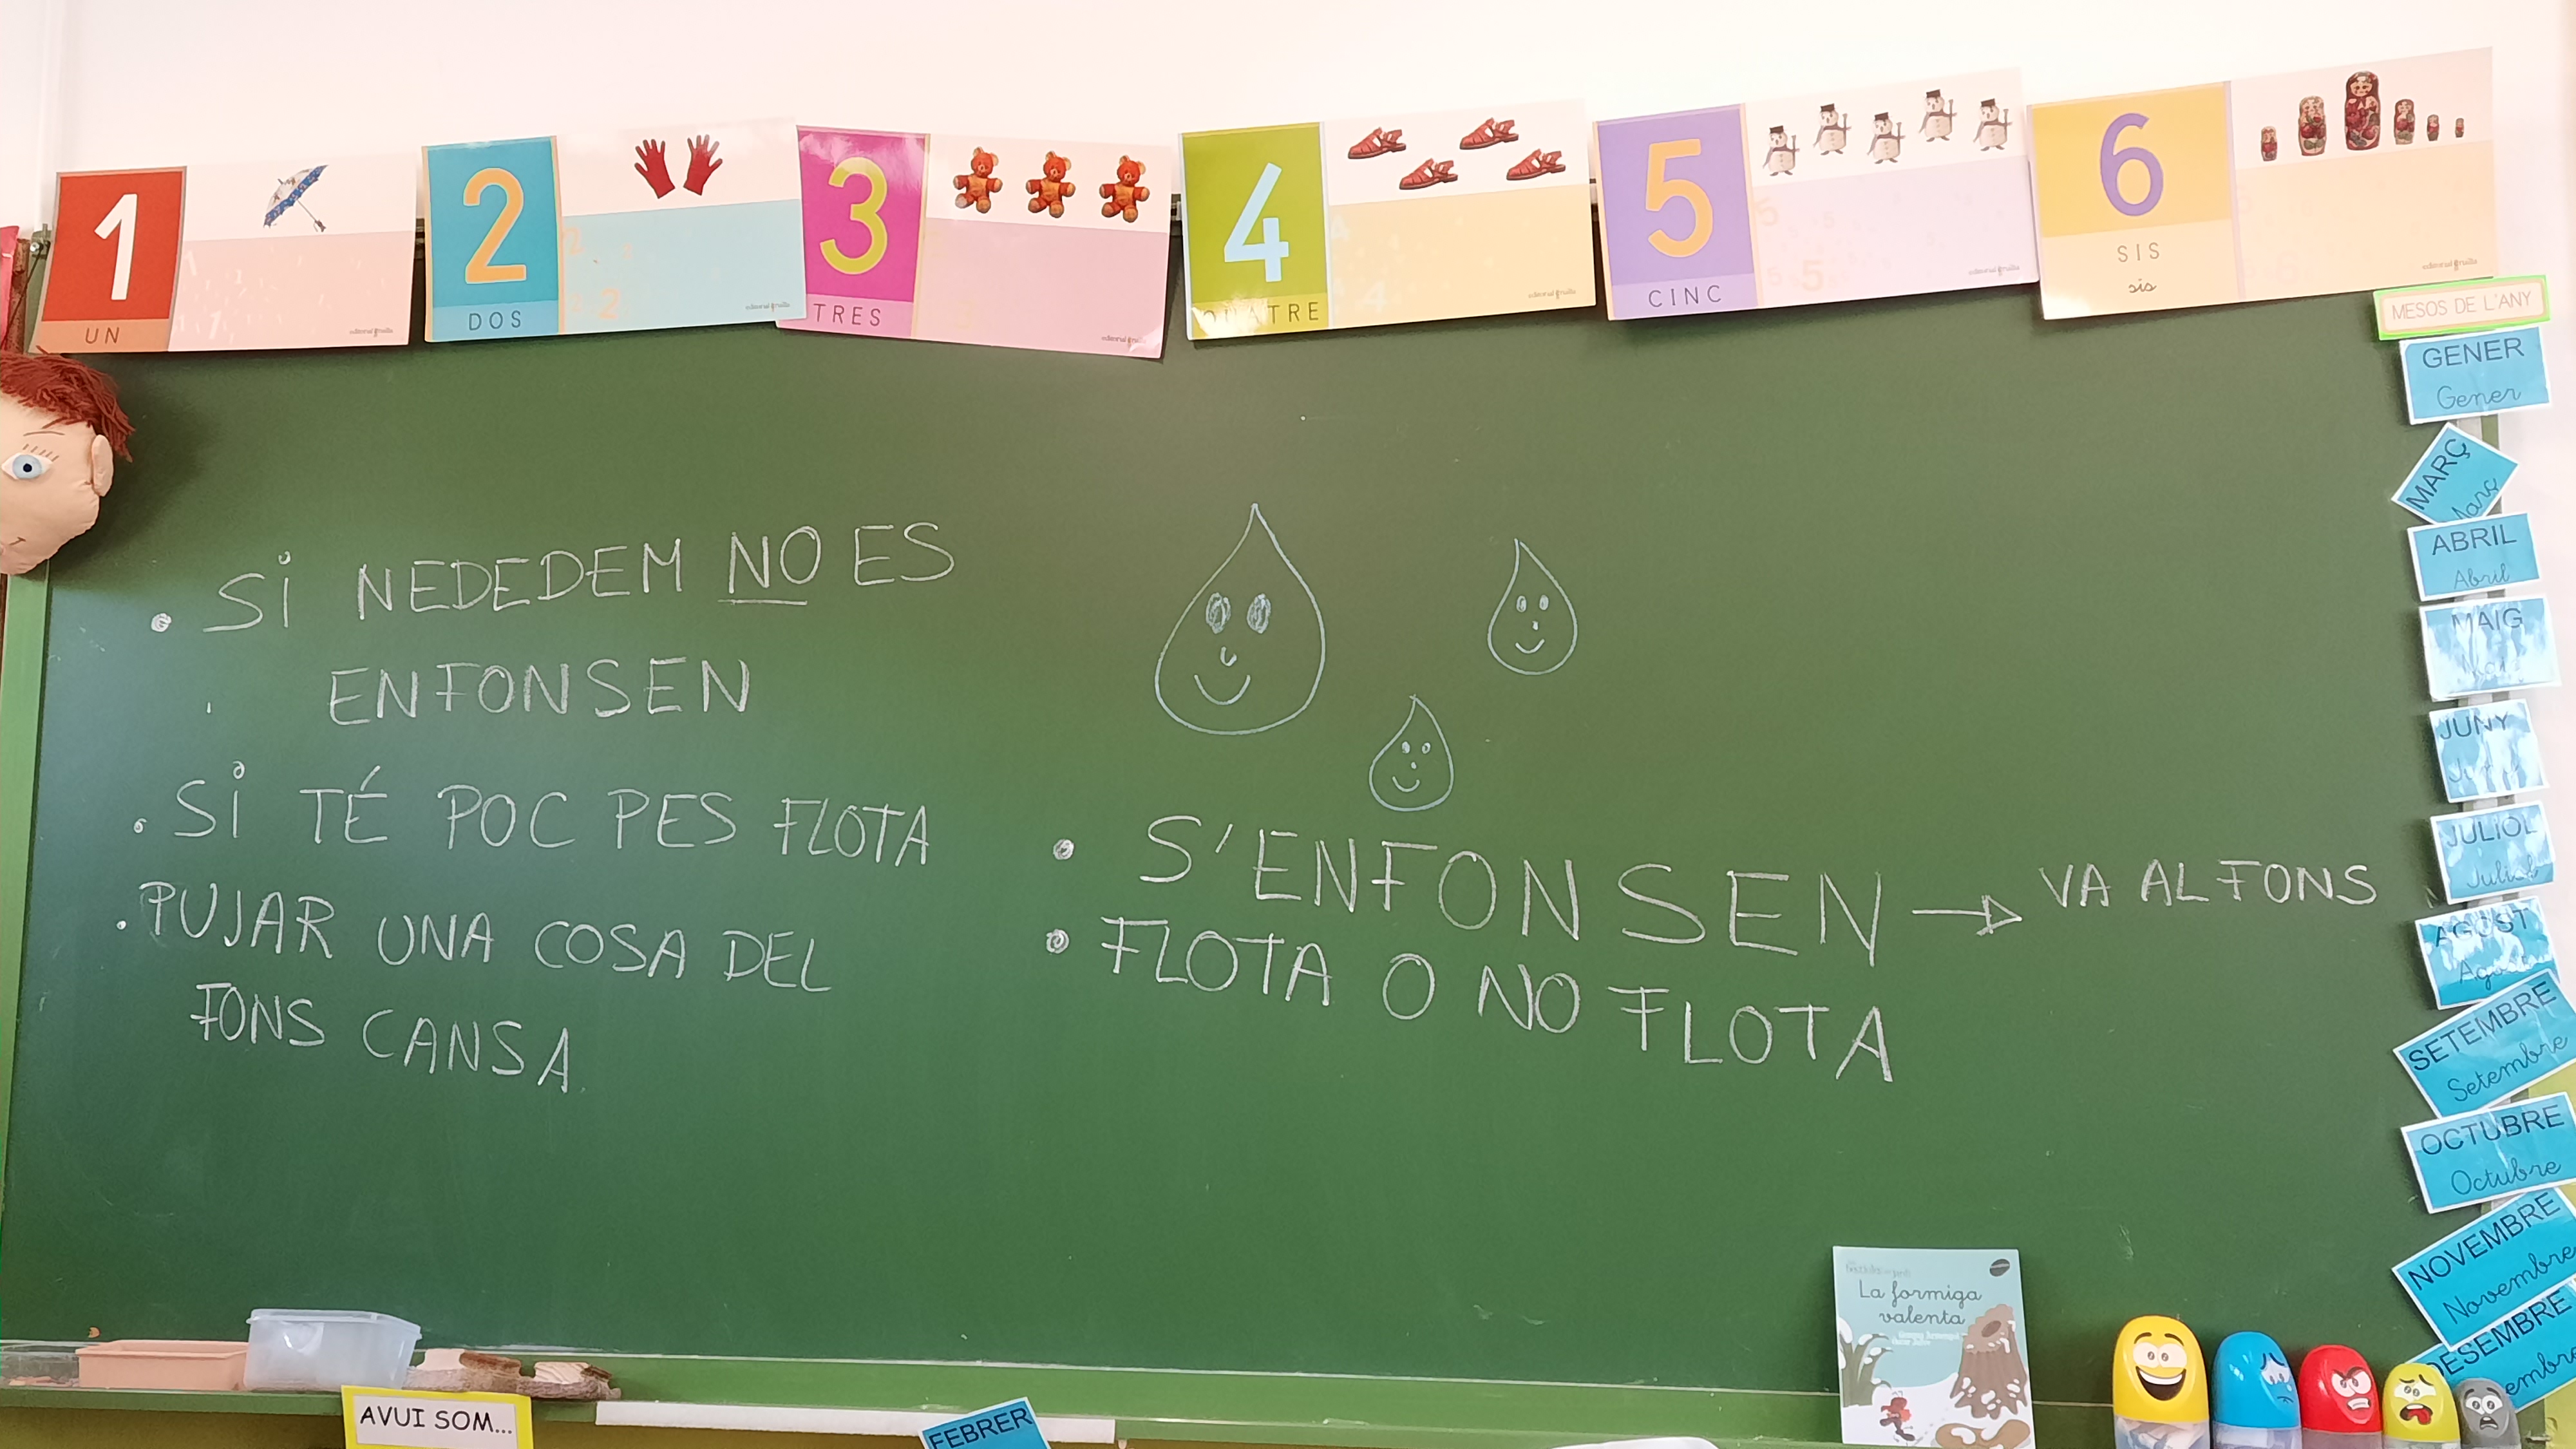 1
UN
2
DOS
3
TRES
4
QUATRE
5
CINC
6
SIS
sis
MESOS DE L'ANY
GENER
Gener
MARÇ
ABRIL
Abril
MAIG
JUNY
JULIOL
Juliol
AGOST
SETEMBRE
Setembre
OCTUBRE
Octubre
NOVEMBRE
Novembre
DESEMBRE
SI NEDEDEM NO ES
ENFONSEN
SI TÉ POC PES FLOTA
PUJAR UNA COSA DEL
FONS CANSA
S'ENFONSEN → VA AL FONS
FLOTA O NO FLOTA
La formiga
valenta
AVUI SOM...
FEBRER